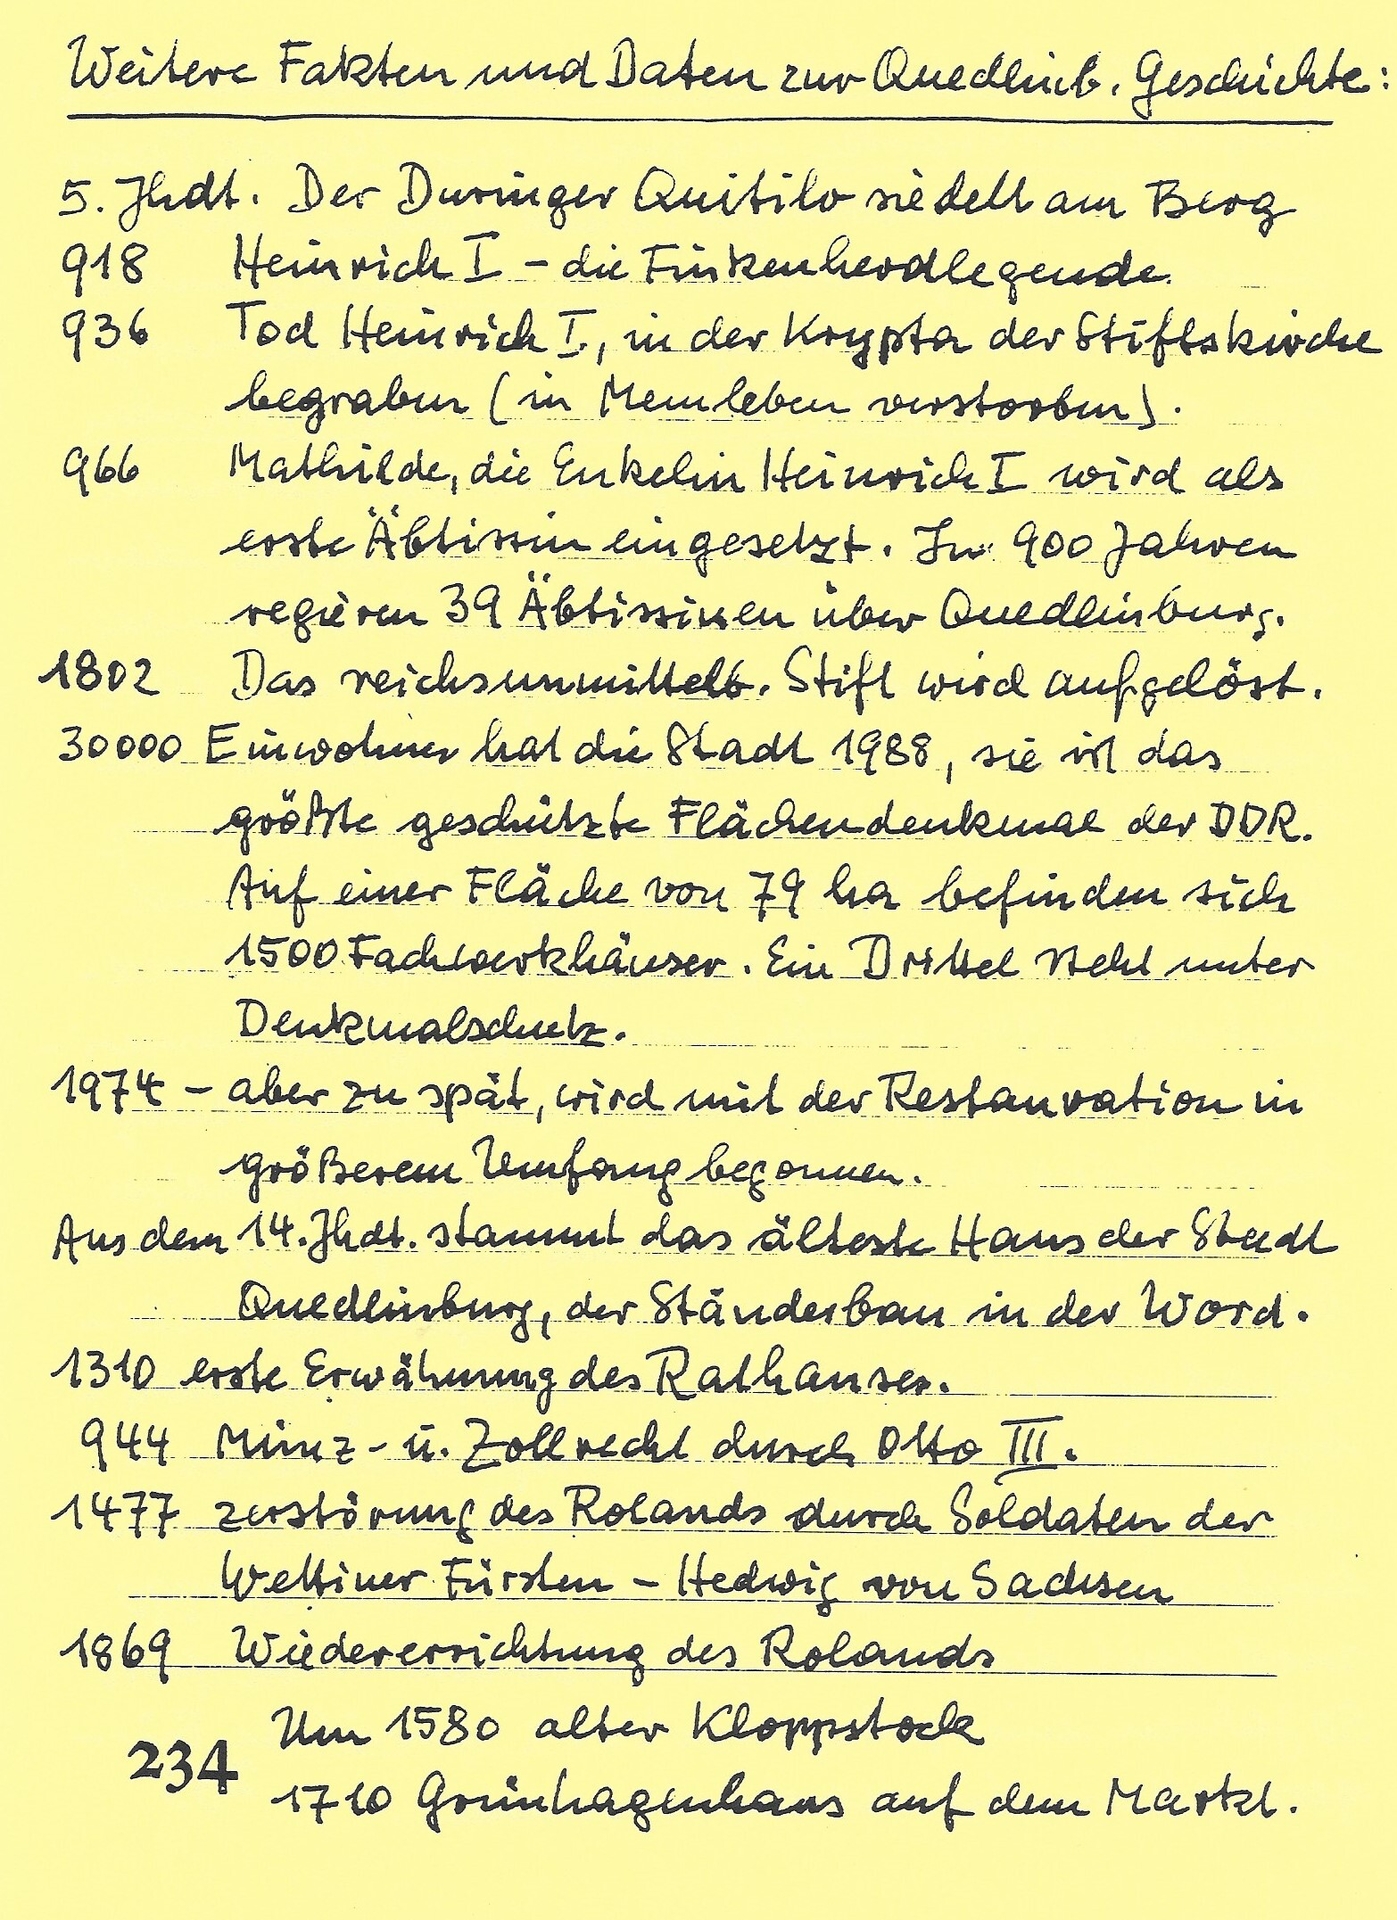 Weitere Fakten und Daten zur Quedlinb. Geschichte:
5. Jhdt. Der Duringer Quitilo siedelt am Berg
918 Heinrich I – die Finkenherdlegende
936 Tod Heinrich I., in der Krypta der Stiftskirche
begraben (in Memleben verstorben).
966 Mathilde, die Enkelin Heinrich I wird als
erste Äbtissin eingesetzt. In 900 Jahren
regieren 39 Äbtissinen über Quedlinburg.
1802 Das reichsunmittelb. Stift wird aufgelöst.
30000 Einwohner hat die Stadt 1988, sie ist das
größte geschützte Flächendenkmal der DDR.
Auf einer Fläche von 79 ha befinden sich
1500 Fachwerkhäuser. Ein Drittel steht unter
Denkmalschutz.
1974 – aber zu spät, wird mit der Restauration in
größerem Umfang begonnen.
Aus dem 14. Jhdt. stammt das älteste Haus der Stadt
Quedlinburg, der Ständerbau in der Word.
1310 erste Erwähnung des Rathauses.
944 Münz- u. Zollrecht durch Otto III.
1477 zerstörung des Rolands durch Soldaten der
Wettiner Fürsten – Hedwig von Sachsen
1869 Wiedererrichtung des Rolands
Um 1580 alter Kloppstock
234
1710 Grünhagenhaus auf dem Markt.